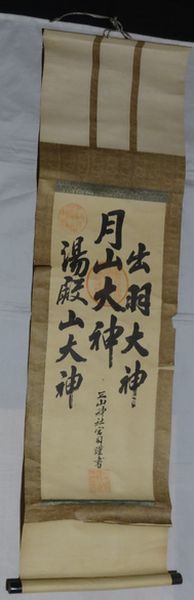 出羽大神
月山大神
湯殿山大神
三山神社宮司謹書